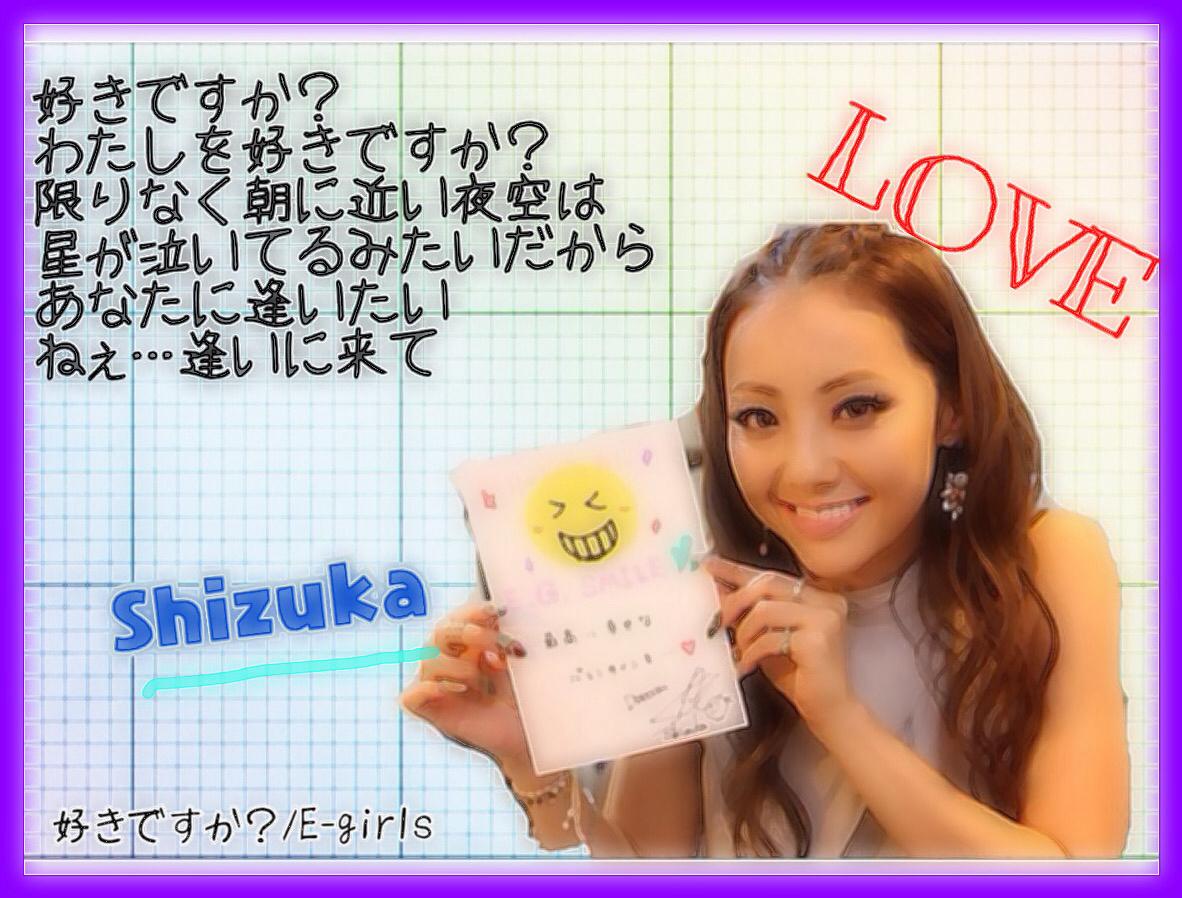 好きですか?
わたしを好きですか?
限りなく朝に近い夜空は
星が泣いてるみたいだから
あなたに逢いたい
ねぇ…逢いに来て
LOVE
E.G. SMILE
Shizuka
好きですか?/E-girls